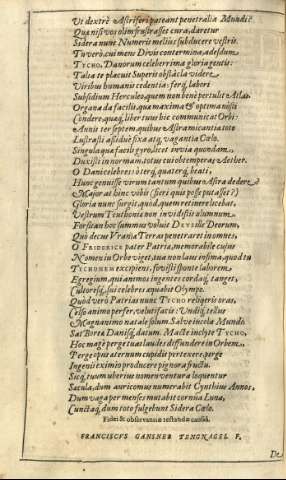 Ut dextrè Astriferi pateant penetralia Mundi?
Quanisi vos olim frustrasset cura, daretur
Sidera nunc Numeris melius subducere vestris.
Tu verò, cui mens Divis contermina, adesdum
TYCHO, Danorum celeberrima gloria gentis:
Talia te placuit Superis obstacla videre
Viribus humanis cedentia: ferq́, labori
Subsidium Herculeo, quem non benè pertulit Atlas.
Organa da facilis, quæ maxima & optima nosti
Condere, quæq́, liber tuus hic communicat Orbi:
Annis ter septem quibus Astra micantia toto
Lustrasti assiduè fixa atq́, vagantia Cœlo.
Singula quæ facili gyro, licet invia quondam,
Duxisti in normam, totus cui obtemperas Aether.
O Dani celebres! ô terq́, quaterq́, beati,
Huc genuisse virum tantum quibus Astra dedere?
Majorat hinc vobis (fieri quis posse putasset?)
Gloria nunc surgit, quod, quem retinere licebat,
Vestrum Teuthonia non invidistis alumnum.
Forsican hoc summus voluit Deus ille Deorum,
Quò decus Uraniæ Terras penetraret in omnes.
O FRIDERICE pater Patriæ, memorabile cujus
Nomen in Orbe viget, tua non laus infima, quod tu
TYCHONEM excipiens, fovisti sponte laborem
Egregium, qui animos ingentes cordaq́, tanget,
Cultoresq́, sui celebres aquabit Olympo.
Quod verò Patrias nunc TYCHO reliqeris oras,
Celso animo perfer, valuistatis: Undiq́, tellus
Magnanimo natale solum. Salve incola Mundi.
Sat Borea Danisq́, datum. Macte inclyte TYCHO.
Hoc magè perge tuas laudes diffundere in Orbem.
Perge opus æternum cupidis pertexere, perge
Ingenii eximio producere pignora fructu.
Sicq́, tuum uberius nomen ventura loquentur
Sæcula, dum auricomus numerabit Cynthius Annos,
Dum vaga per menses mutabit cornua Luna,
Cunctaq́, dum toto fulgebunt Sidera Cœlo.
Fidei & observantiæ testandæ causâ,
FRANCISCVS GANSNEB TENGNAGEL F.
De